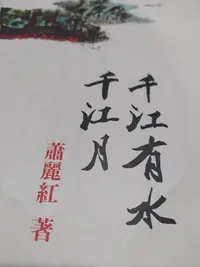 千江有水
千江月
蕭麗紅 著